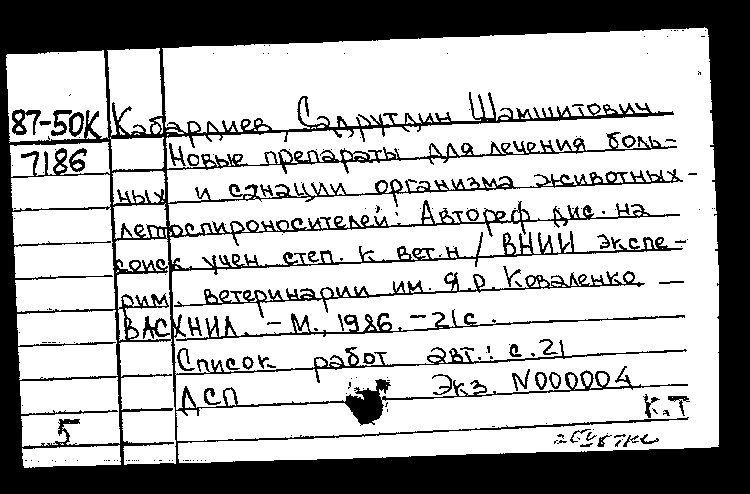 87-50К Кабардиев, Садрутдин Шамшитович.
7186 Новые препараты для лечения боль-
ных и санации организма животных-
лептоспироносителей: Автореф. дис. на
соиск. учен. степ. к. вет. н / ВНИИ экспе-
рим. ветеринарии им. Я.Р. Коваленко
ВАСХНИЛ. - М., 1986. - 21с.
Список работ авт.: с. 21
ДСП Экз. N000004
К.Т
5